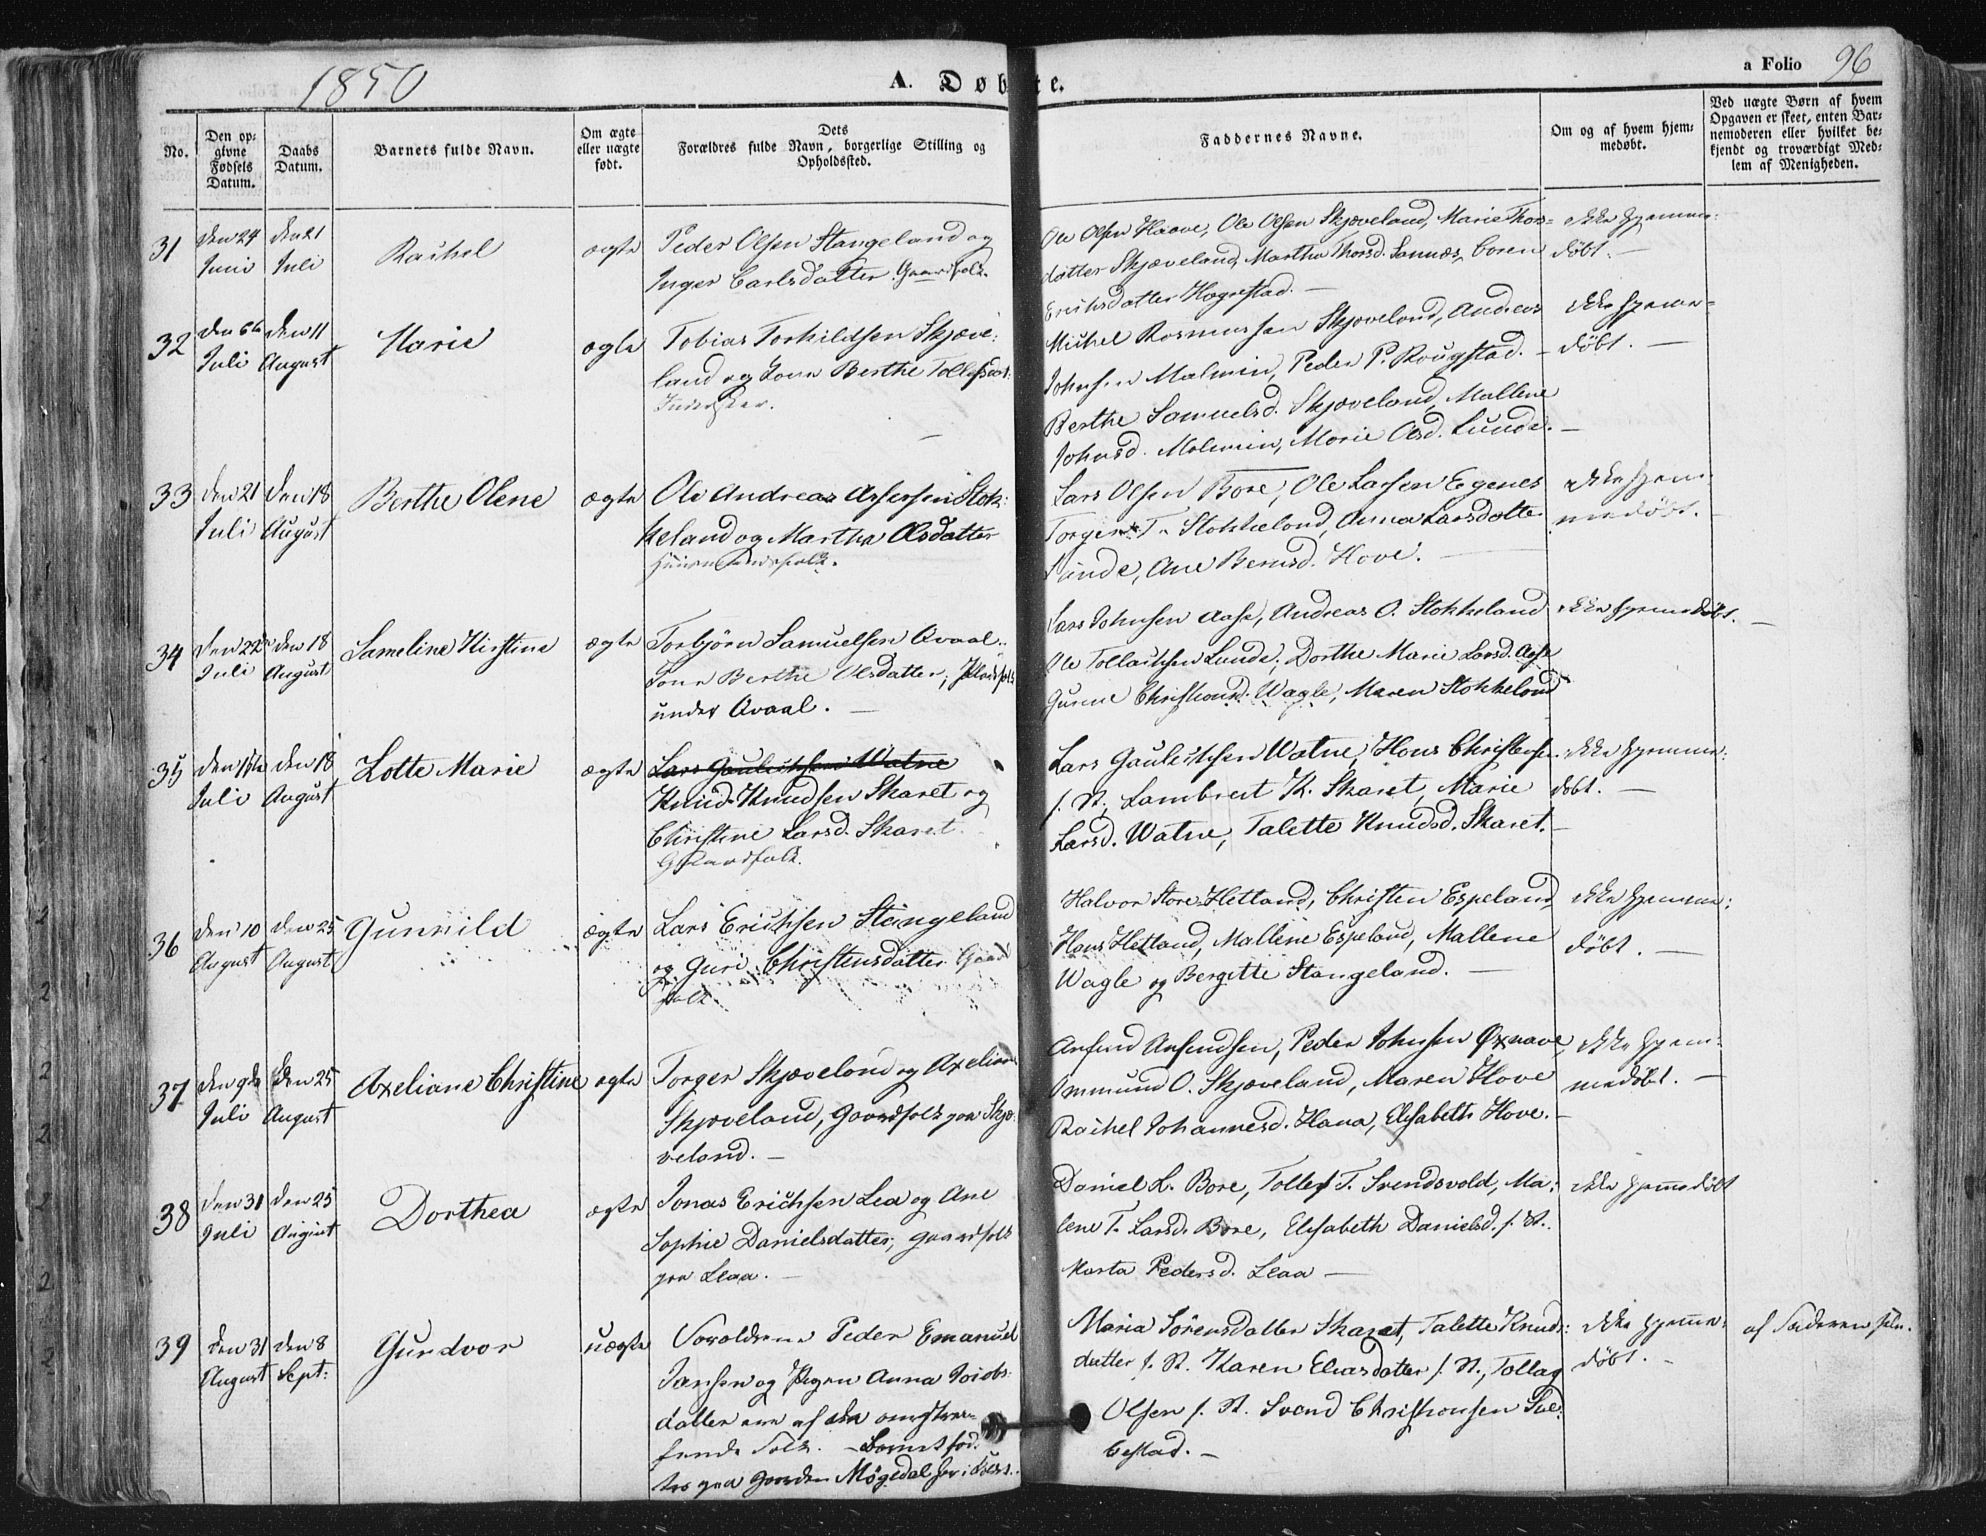 1850
A. Døbte.
a Folio 96
No.
Den op-
givne
Fødsels
Datum.
Daabs
Datum.
Barnets fulde Navn.
Om ægte
eller uægte
født.
Dets
Forældres fulde Navn, borgerlige Stilling og
Opholdssted.
Faddernes Navne.
Om og af hvem hjem-
medøbt.
Ved uægte Børn af hvem
Opgaven er skeet, enten Bar-
nemoderen eller hvilket be-
kjendt og troværdigt Med-
lem af Menigheden.
31
den 24
Juni
den 21
Juli
Rachel
ægte
Peder Olsen Stangeland og
Inger Carlsdatter Gaardfolk.
Ole Olsen Haave, Ole Olsen Skjæveland, Marie Thors-
datter Skjæveland, Martha Thorsd. Sannæs, Coren
Erichsdatter Hognestad. —
ikke hjemme-
døbt. —
32
den 6te
Juli
den 11
August
Marie
ægte
Tobias Torkildsen Skjæve-
land og Kone Berthe Tollefsdat:
Inderster.
Michel Rasmussen Skjæveland, Andreas
Johnsen Malmin, Peder P. Rougstad. —
Berthe Samuelsd. Skjæveland, Mallene
Johnsd. Malmin, Marie Olsd. Lunde. —
ikke hjemme-
døbt. —
33
den 21
Juli
den 18
August
Berthe Olene
ægte
Ole Andreas Assersen Stok-
keland og Martha Olsdatter
Lars Olsen Bore, Ole Larsen Egenes
Torger T. Stokkeland, Anna Larsdatter
Lunde, Ane Berntsd. Hove. —
ikke hjem-
medøbt. —
34
den 22de
Juli
den 18
August
Sameline Kirstine
ægte
Torbjörn Samuelsen Avaal..
Kone Berthe Olsdatter,
under Avaal. —
Lars Johnsen Aase, Andreas O. Stokkeland
Ole Tollaichsen Lunde, Dorthe Marie Larsd. Aase
Gurine Christiansd. Wagle, Maren Stokkeland
ikke hjemmedøbt. —
35
den
Juli
den 18
August
Lotte Marie
ægte
Lars Gauleichsen Watne
Knud Knudsen Skaret og
Christine Larsd. Skaret.
Gaardfolk.
Lars Gauleichsen Watne, Hans Christens.
s. St, Lambrect K. Skaret, Marie
Larsd. Watne, Talette Knudsd. Skaret. —
ikke hjemme-
døbt. —
36
den 10
August
den 25
August
Gunvild
ægte
Lars Erichsen Stangeland
og Guri Christensdatter Gaard
folk.
Halvor Store-Hetland, Christen Espeland
Hans Hetland, Mallene Espeland, Mallene
Wagle og Bergitte Stangeland. —
ikke hjemme-
døbt. —
37
den 9de
Juli
den 25
August
Axeliane Christine
ægte
Torger Skjæveland og Axeliane
Skjæveland, Gaardfolk paa Skjæ-
veland. —
Anfind Anfindsen, Peder Johnsen Øxnave,
Ommund O. Skjæveland, Maren Hove
Rachel Johannesd. Hana, Elisabeth Hove. —
ikke hjem-
medøbt. —
38
den 31
Juli
den 25
August
Dorthea
ægte
Jonas Erichsen Lea og Ane
Sophie Danielsdatter, Gaardfolk
paa Leaa. —
Daniel L. Bore, Tollef T. Svendsvold, Ma-
lene T. Larsd. Bore, Elisabeth Danielsd. s. St.
Marta Pedersd. Leaa —
ikke hjemmedøbt
39
den 31
August
den 8
Sept:
Gurdvor
uægte
Forældrene Peder Emanuel
Jansen og Pigen Anna Jacobs-
datter ere af den omstrei-
fende Folk. —
paa Gaarden Møgedal her i
Maria Sörensdatter Skaret, Talette Knuds-
datter s. St. Karen Eliasdatter s. St., Tollag
Olsen s. St. Svend Christiansen Sol-
bestad. —
ikke hjemme-
døbt. —
af Faderen selv.